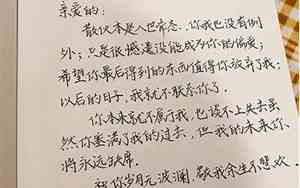 亲爱的:
散伙本是人世常态,你我也没有例
外;只是很遗憾没能成为你的偏爱;
希望你最后得到的东西值得你放弃了我;
以后的日子,我就不联系你了。
你本来就不属于我,也谈不上失去虽
然你塞满了我的过去,但我的未来你
将永远缺席。
祝你岁月无波澜,敬我余生不悲欢